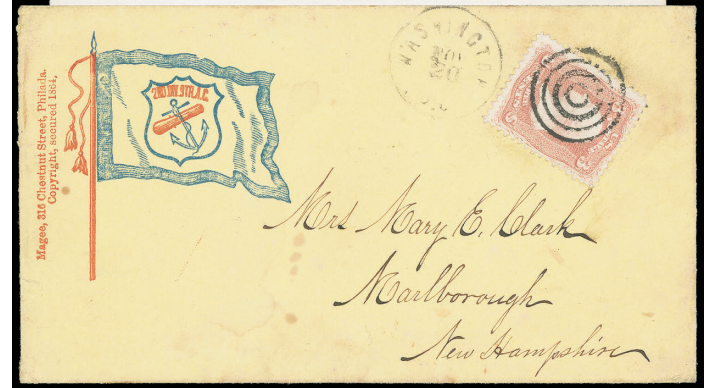 Magee, 316 Chestnut Street, Philada.
Copyright, secured 1864.
2ND DIV. 9TH. A.C.
WASHINGTON
NOV
20
Mrs Mary E. Clark
Marlborough
New Hampshire